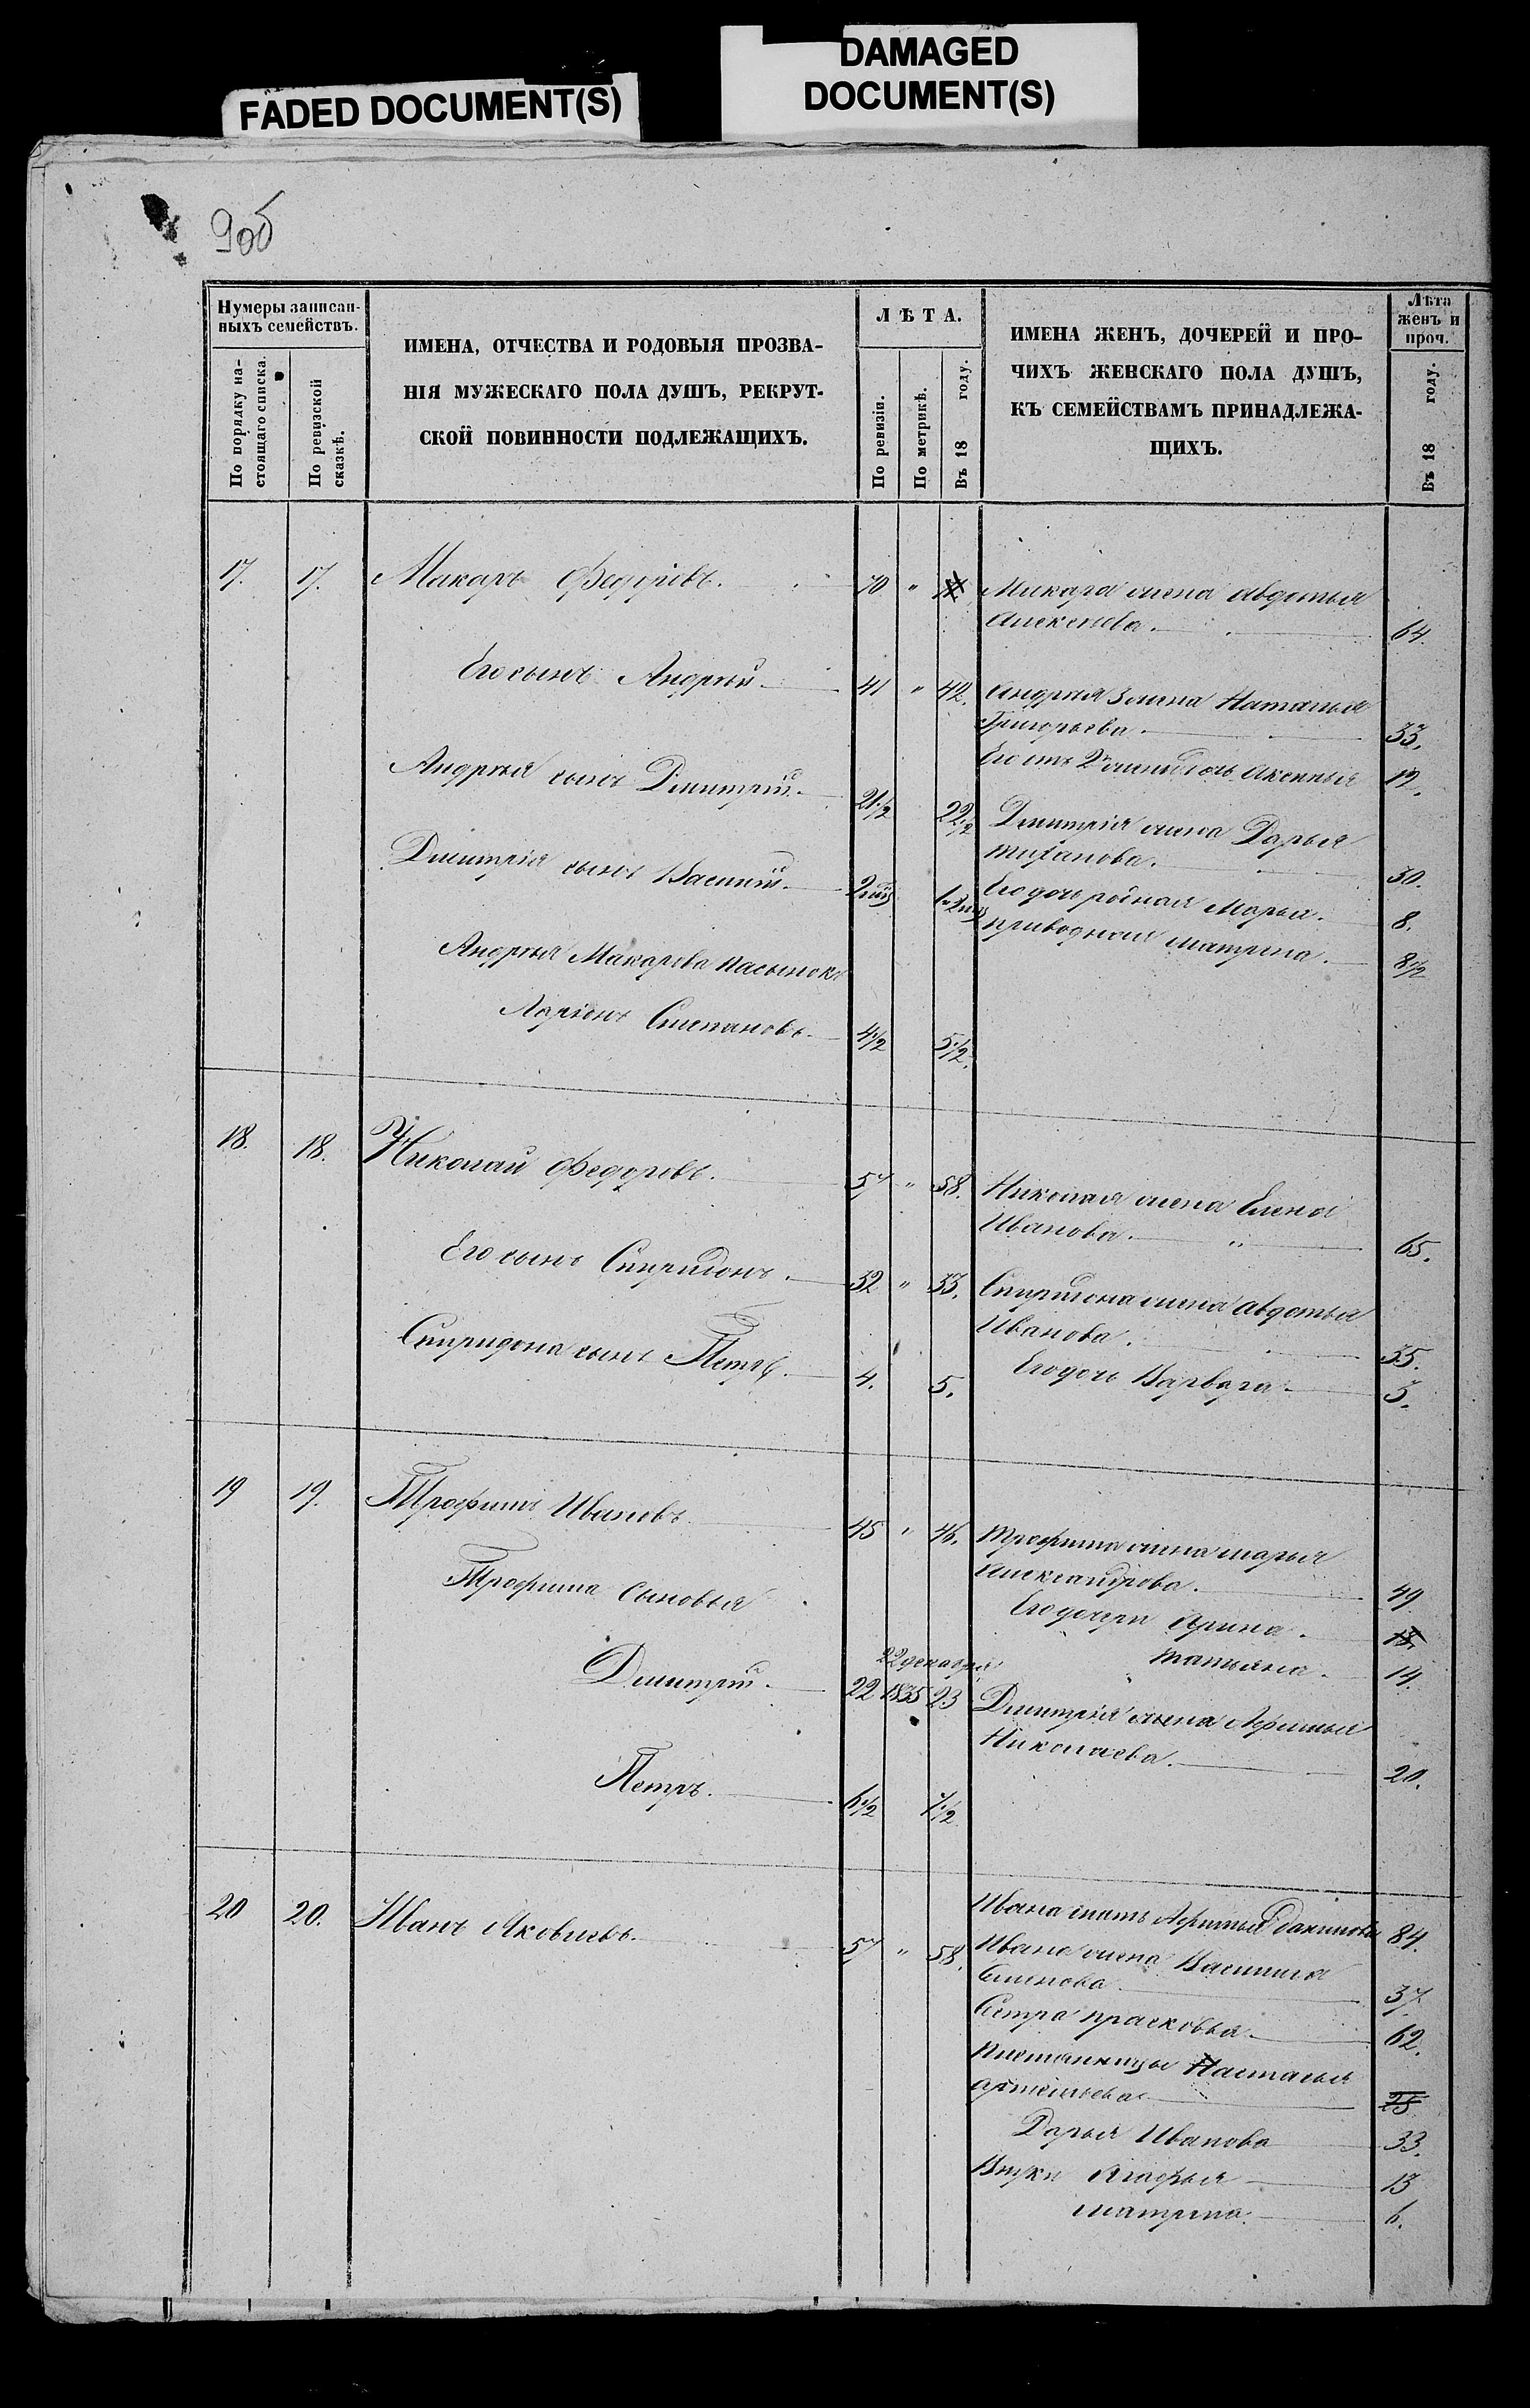 FADED DOCUMENT(S)
DAMAGED
DOCUMENT(S)
9об
Нумеры записан-
ныхъ семействъ.
По порядку на-
стоящаго списка.
По ревизской
сказкѣ.
ИМЕНА, ОТЧЕСТВА И РОДОВЫЯ ПРОЗВА-
НІЯ МУЖЕСКАГО ПОЛА ДУШЪ, РЕКРУТ-
СКОЙ ПОВИННОСТИ ПОДЛЕЖАЩИХЪ.
ЛѢТА.
По ревизіи.
По метрикѣ.
Въ 18 году.
ИМЕНА ЖЕНЪ, ДОЧЕРЕЙ И ПРО-
ЧИХЪ ЖЕНСКАГО ПОЛА ДУШЪ,
КЪ СЕМЕЙСТВАМЪ ПРИНАДЛЕЖА-
ЩИХЪ.
Лѣта
женъ и
проч.
Въ 18 году.
17. 17. Макаръ Федоровъ. 70 " Макара жена Авдотья
Алексѣева. 64.
Его сынъ Андрей 41 " 42. Андрея 3 жена Наталья
Григорьева. 33.
Его отъ 2й жены дочь Аксинья 12.
Андрея сынъ Дмитрій. 21½ 22½ Дмитрія жена Дарья
30.
Дмитрія сынъ Василій. Его дочь родная Марья. 8.
приводная Матрена. 8½
Андрея Макарова пасынокъ
Ларіонъ Степановъ. 4½ 5½.
18. 18. Николай Федоровъ. 57 " 58. Николая жена Елена
Иванова. " 65.
Его сынъ Спиридонъ. 32 " 33. Спиридона жена Авдотья
Иванова. 35.
Спиридона сынъ Петръ. 4. 5. Его дочь Варвара. 3.
19 19. Трофимъ Ивановъ 45 " 46. Трофима жена Марья
Александрова. 49.
Трофима сыновья Его дочери Арина. 18.
Татьяна. 14.
22 декабря
Дмитрій. 22 1835 23 Дмитрія жена Афимья
Николаева. 20.
Петръ. 6½ 7½
20 20. Иванъ Яковлевъ. 57 " 58. Ивана мать Афимья 84.
Ивана жена Василиса
37.
Сестра Прасковья. 62.
Племянницы Настасья
25
Дарья Иванова 33.
Внуки Агафья 13
Матрена. 6.